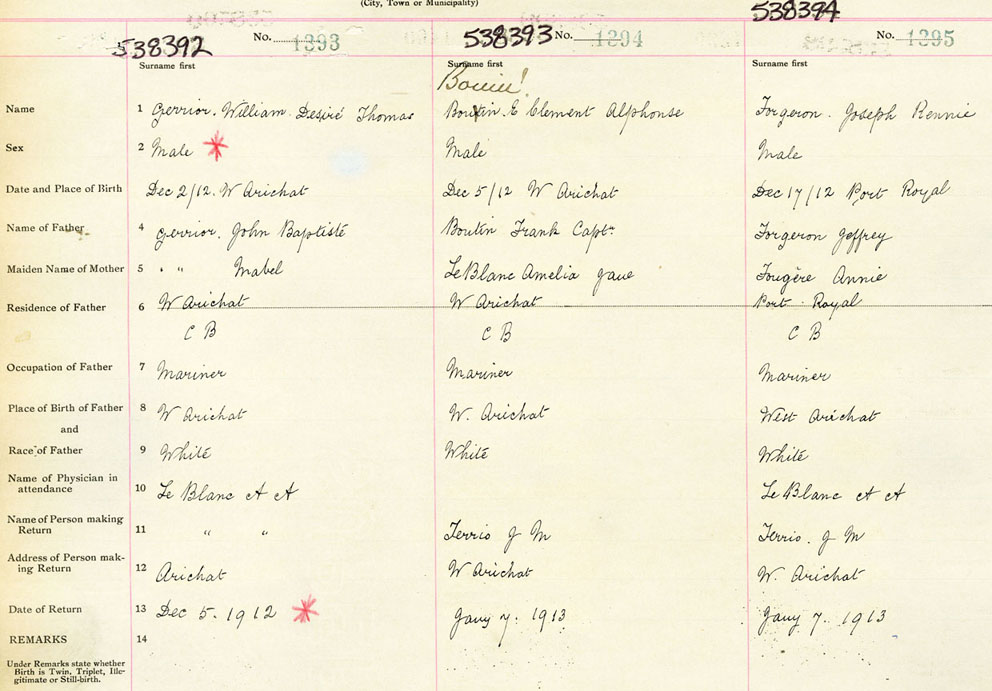 (City, Town or Municipality)
538392 No. 1393 538393 No. 1294 538394 No. 1295
Surname first Surname first Surname first
Name 1 Gerrior. William Desiré Thomas Boutin. E Clement Alphonse Forgeron. Joseph Rennie
Sex 2 Male Male Male
Date and Place of Birth Dec 2/12. W Arichat Dec 5/12 W Arichat Dec 17/12 Port Royal
Name of Father 4 Gerrior. John Baptiste Boutin Frank Capt. Forgeron Jeffrey
Maiden Name of Mother 5 " " Mabel LeBlanc Amelia Jane Fougère Annie
Residence of Father 6 W Arichat W Arichat Port Royal
C B C B C B
Occupation of Father 7 Mariner Mariner Mariner
Place of Birth of Father 8 W Arichat W. Arichat West Arichat
and
Race of Father 9 White White White
Name of Physician in
attendance 10 Le Blanc A A Le Blanc A A
Name of Person making
Return 11 " " Terrio J M Terrio. J M
Address of Person mak-
ing Return 12 Arichat W Arichat W. Arichat
Date of Return 13 Dec 5. 1912 Jany 7. 1913 Jany 7. 1913
REMARKS 14
Under Remarks state whether
Birth is Twin, Triplet, Ille-
gitimate or Still-birth.